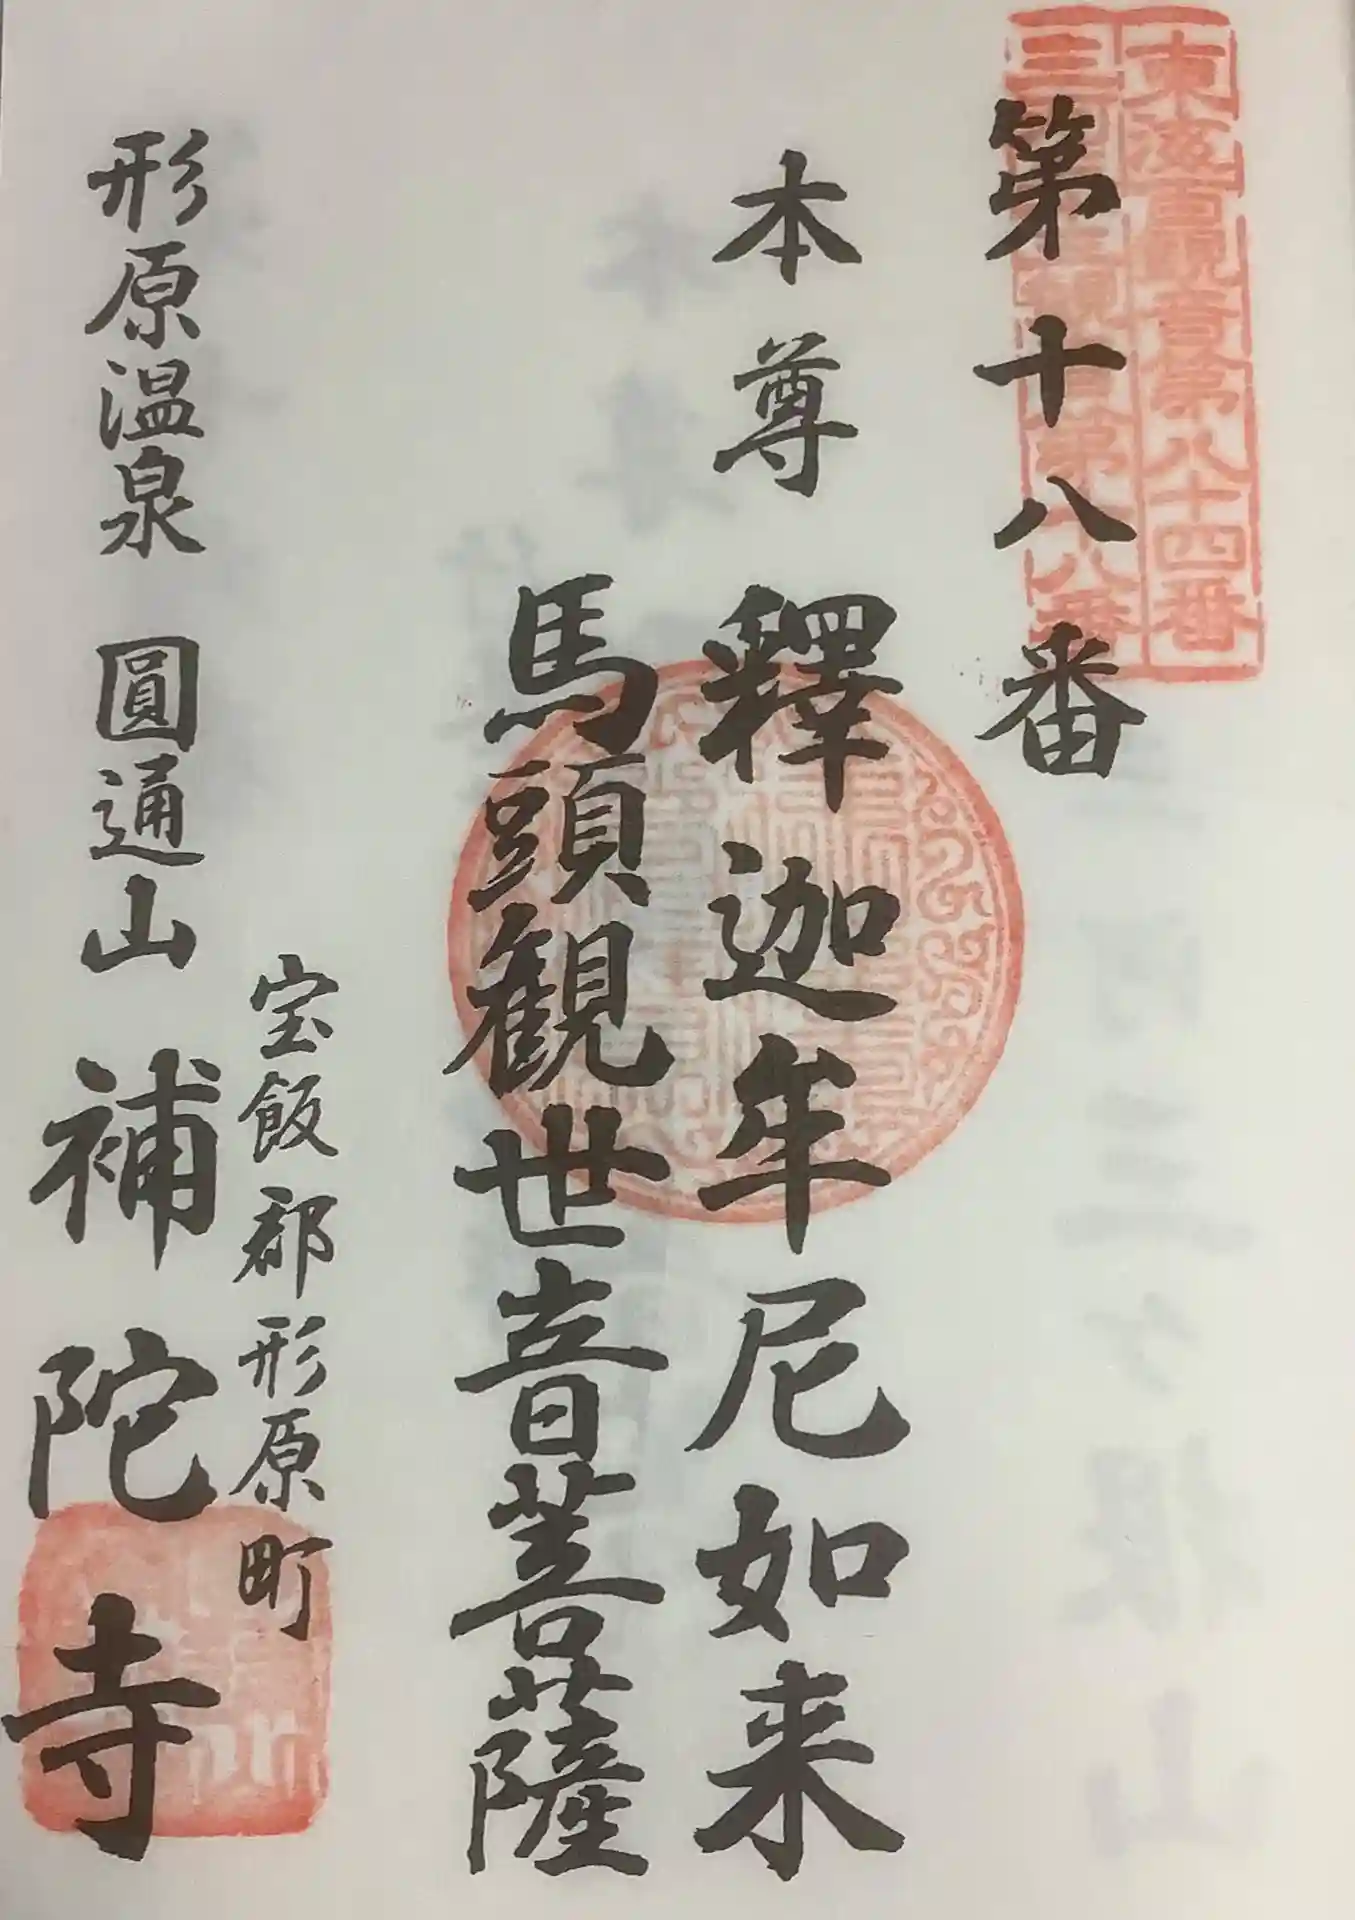 東海百観音第八十四番
第十八番
本尊 釋迦牟尼如来
馬頭観世音菩薩
宝飯郡形原町
形原温泉 圓通山 補陀寺